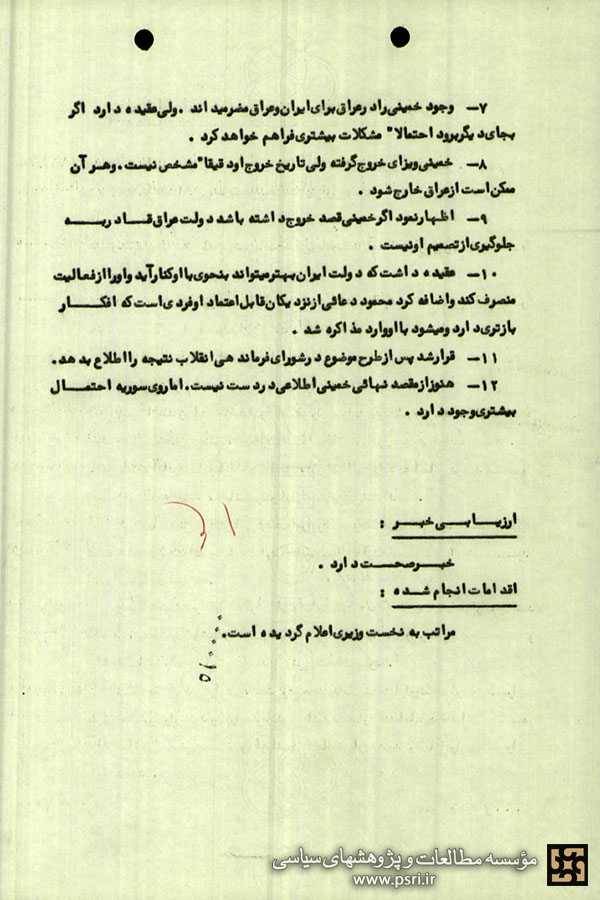 ۷- وجود خمینی را در عراق برای ایران و عراق مضر میداند . ولی عقیده دارد اگر
بجای دیگر برود احتمالا" مشکلات بیشتری فراهم خواهد کرد .
۸- خمینی ویزای خروج گرفته ولی تاریخ خروج او دقیقا" مشخص نیست . و هر آن
ممکن است از عراق خارج شود .
۹- اظهار نمود اگر خمینی قصد خروج داشته باشد دولت عراق قادر به
جلوگیری از تصمیم او نیست .
۱۰- عقیده داشت که دولت ایران بهتر میتواند بنحوی با او کنار آید و او را از فعالیت
منصرف کند و اضافه کرد محمود دعائی از نزدیکان قابل اعتماد او فردی است که افکار
بازتری دارد و میشود با او وارد مذاکره شد .
۱۱- قرار شد پس از طرح موضوع در شورای فرماندهی انقلاب نتیجه را اطلاع بدهد .
۱۲- هنوز از مقصد نهائی خمینی اطلاعی در دست نیست . اما روی سوریه احتمال
بیشتری وجود دارد .
ارزیابی خبر :
خبر صحت دارد .
اقدامات انجام شده :
مراتب به نخست وزیری اعلام گردیده است .
مؤسسه مطالعات و پژوهشهای سیاسی
www.psri.ir